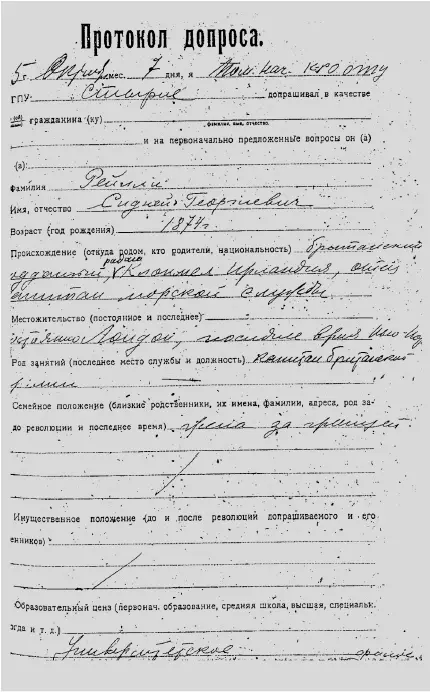 Протокол допроса.
5 г. Октяб. мес. 7 дня, я Пом. нач. КРО ОГПУ
ГПУ Стырне допрашивал в качестве
гражданина (ку)
фамилия, имя, отчество.
и на первоначально предложенные вопросы он (а)
(а):
Фамилия Рейлли
Имя, отчество Сидней Георгиевич
Возраст (год рождения) 1874 г
Происхождение (откуда родом, кто родители, национальность) британский
подданный, Клонмел Ирландия, отец
капитан морской службы
Местожительство (постоянное и последнее)
Лондон, последнее время Нью-Йо
Род занятий (последнее место службы и должность) капитан британской
армии
Семейное положение (близкие родственники, их имена, фамилии, адреса, род за-
до революции и последнее время) жена за границей
Имущественное положение (до и после революции допрашиваемого и его
енников)
Образовательный ценз (первонач. образование, средняя школа, высшая, специальн.
огда и т. д.)
Университетское